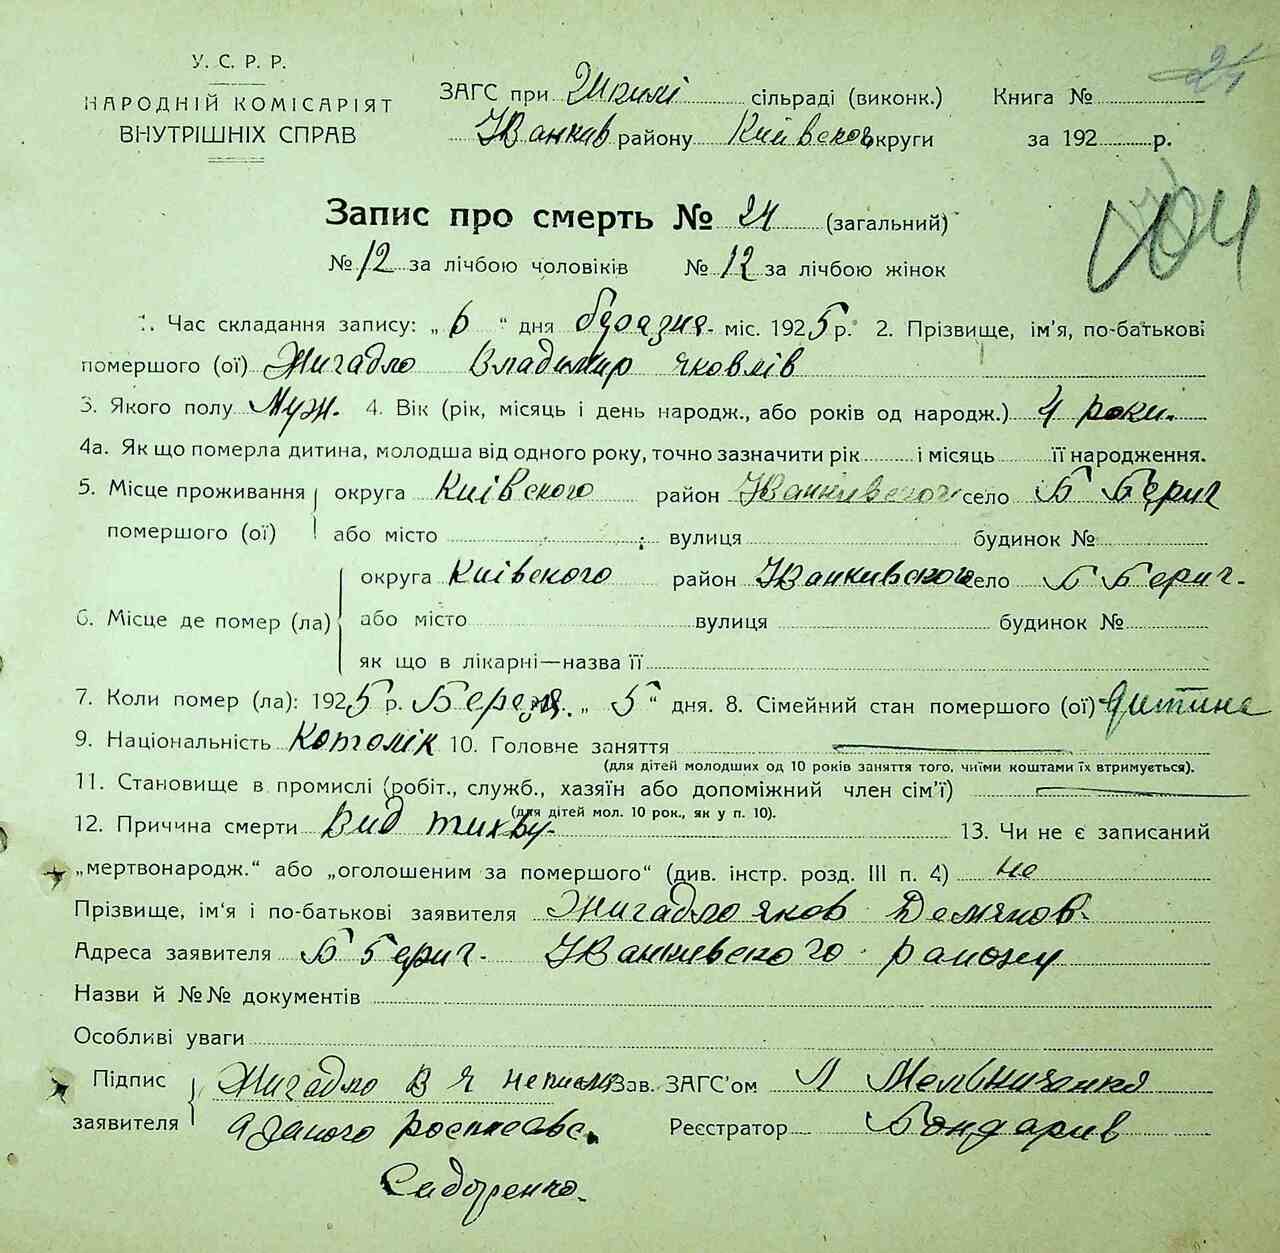 У. С. Р. Р.
НАРОДНІЙ КОМІСАРІЯТ
ВНУТРІШНІХ СПРАВ
ЗАГС при сільраді (виконк.)
Іванків району Київской округи
Книга № 24
за 192 р.
104
Запис про смерть № 24 (загальний)
№ 12 за лічбою чоловіків № 12 за лічбою жінок
1. Час складання запису: „ 6 “ дня міс. 1925 р. 2. Прізвище, ім’я, по-батькові
помершого (ої) Жигадло Владимир Яковлів
3. Якого полу Муж. 4. Вік (рік, місяць і день народж., або років од народж.) 4 роки.
4а. Як що померла дитина, молодша від одного року, точно зазначити рік і місяць її народження.
5. Місце проживання помершого (ої) округа Київского район Иванкивского село Б Берич
або місто вулиця будинок №
6. Місце де помер (ла) округа Київского район Иванкивского село Б Берич.
або місто вулиця будинок №
як що в лікарні—назва її
7. Коли помер (ла): 1925 р. Березня. „ 5 “ дня. 8. Сімейний стан помершого (ої) дитина
9. Національність Котолік 10. Головне заняття
(для дітей молодших од 10 років заняття того, чиїми коштами їх втримується).
11. Становище в промислі (робіт., служб., хазяїн або допоміжний член сім’ї)
(для дітей мол. 10 рок., як у п. 10).
12. Причина смерти Вид тихву. 13. Чи не є записаний
„мертвонародж.“ або „оголошеним за помершого“ (див. інстр. розд. III п. 4) не
Прізвище, ім’я і по-батькові заявителя Жигадло Яков Демянов.
Адреса заявителя Б Берич. Иванкивского району
Назви й №№ документів
Особливі уваги
Підпис заявителя Жигадло В Я Зав. ЗАГС’ом Л Мельниченко
Реєстратор Бондарив
Сидоренко.